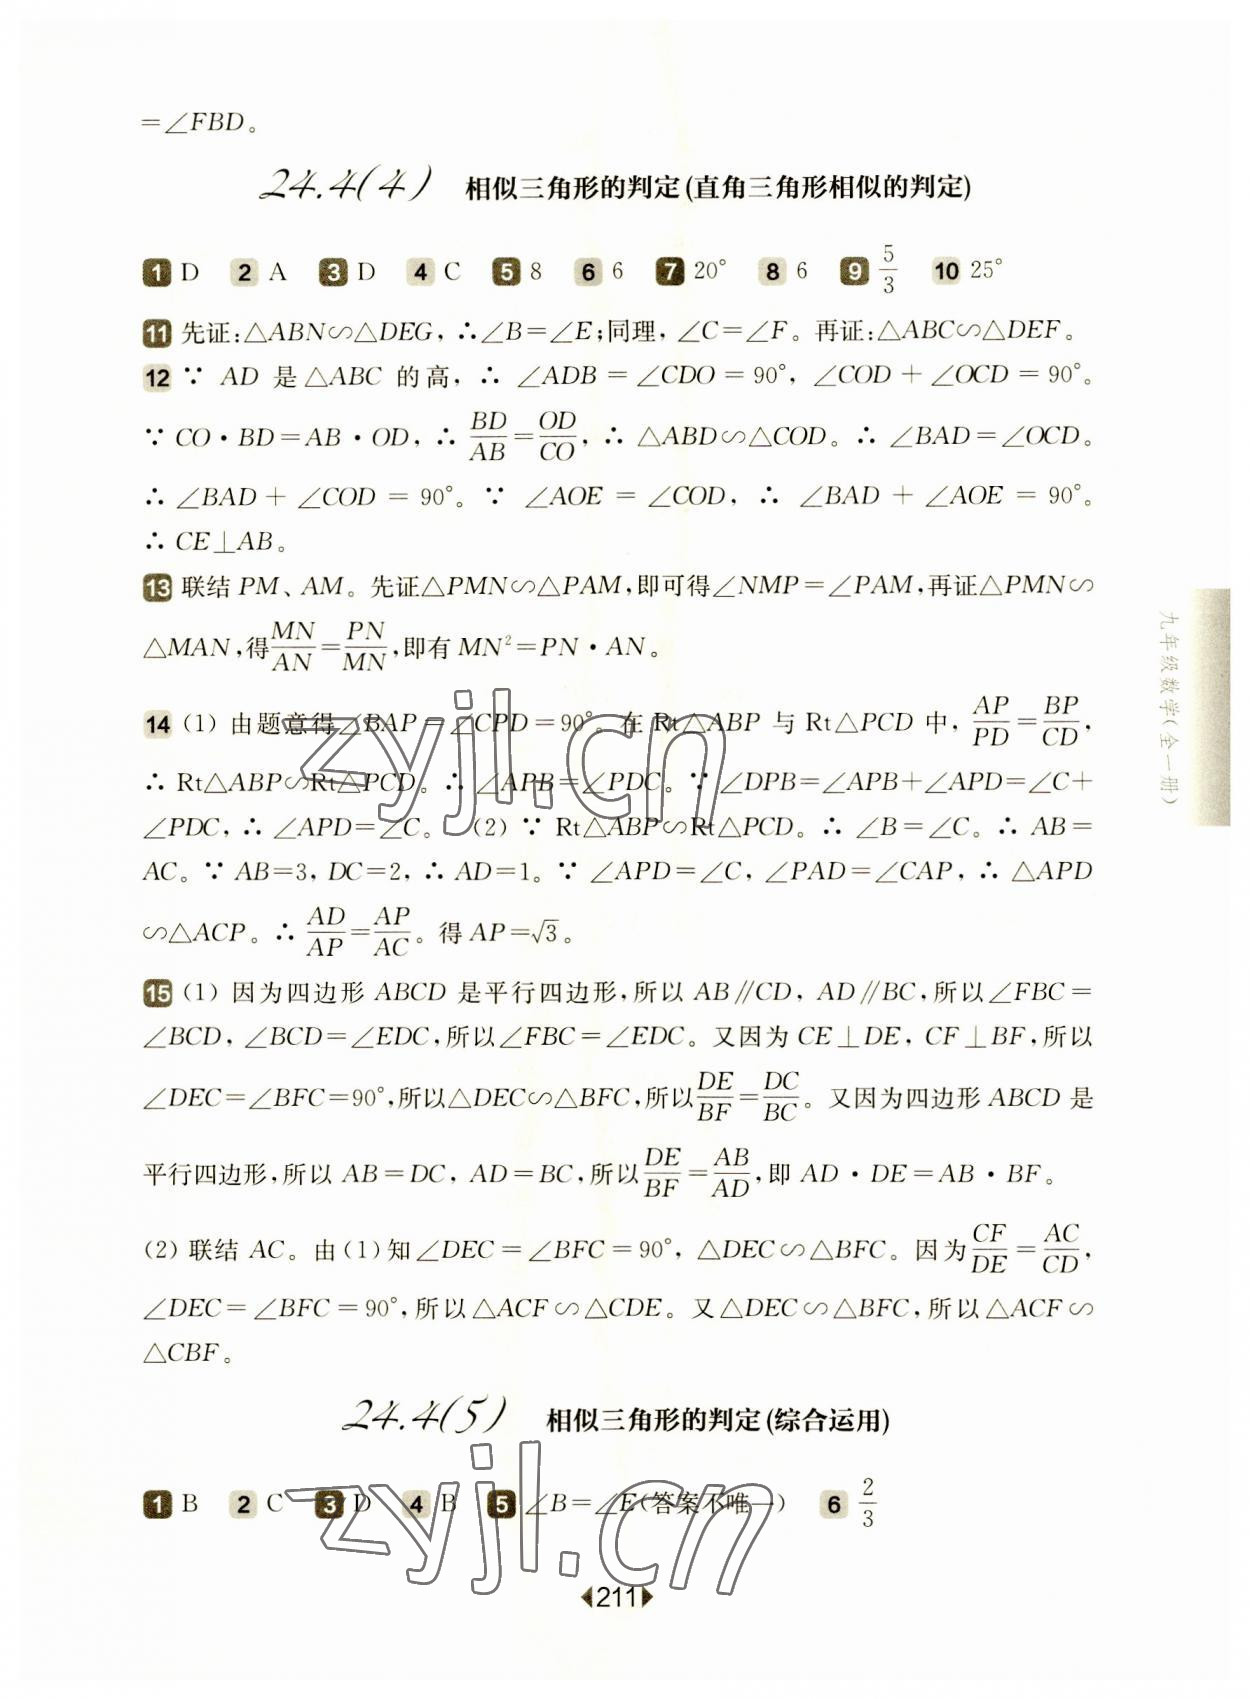 =∠FBD。
24.4(4) 相似三角形的判定(直角三角形相似的判定)
1 D 2 A 3 D 4 C 5 8 6 6 7 20° 8 6 9 5/3 10 25°
11 先证:△ABN∽△DEG,∴∠B=∠E;同理,∠C=∠F。再证:△ABC∽△DEF。
12 ∵ AD 是△ABC 的高,∴ ∠ADB=∠CDO=90°,∠COD+∠OCD=90°。
∵ CO·BD=AB·OD,∴ BD/AB=OD/CO,∴ △ABD∽△COD。∴ ∠BAD=∠OCD。
∴ ∠BAD+∠COD=90°。∵ ∠AOE=∠COD,∴ ∠BAD+∠AOE=90°。
∴ CE⊥AB。
13 联结 PM、AM。先证△PMN∽△PAM,即可得∠NMP=∠PAM,再证△PMN∽
△MAN,得MN/AN=PN/MN,即有 MN²=PN·AN。
14 (1) 由题意得∠BAP=∠CPD=90°。在 Rt△ABP 与 Rt△PCD 中,AP/PD=BP/CD,
∴ Rt△ABP∽Rt△PCD。∴ ∠APB=∠PDC。∵ ∠DPB=∠APB+∠APD=∠C+
∠PDC,∴ ∠APD=∠C。 (2) ∵ Rt△ABP∽Rt△PCD。∴ ∠B=∠C。∴ AB=
AC。∵ AB=3,DC=2,∴ AD=1。∵ ∠APD=∠C,∠PAD=∠CAP,∴ △APD
∽△ACP。∴ AD/AP=AP/AC。得 AP=√3。
15 (1) 因为四边形 ABCD 是平行四边形,所以 AB∥CD,AD∥BC,所以∠FBC=
∠BCD,∠BCD=∠EDC,所以∠FBC=∠EDC。又因为 CE⊥DE,CF⊥BF,所以
∠DEC=∠BFC=90°,所以△DEC∽△BFC,所以DE/BF=DC/BC。又因为四边形 ABCD 是
平行四边形,所以 AB=DC,AD=BC,所以DE/BF=AB/AD,即 AD·DE=AB·BF。
(2) 联结 AC。由(1)知∠DEC=∠BFC=90°,△DEC∽△BFC。因为CF/DE=AC/CD,
∠DEC=∠BFC=90°,所以△ACF∽△CDE。又△DEC∽△BFC,所以△ACF∽
△CBF。
24.4(5) 相似三角形的判定(综合运用)
1 B 2 C 3 D 4 B 5 ∠B=∠E(答案不唯一) 6 2/3
211
九年级数学(全一册)
zyjl.cn
zyjl.cn